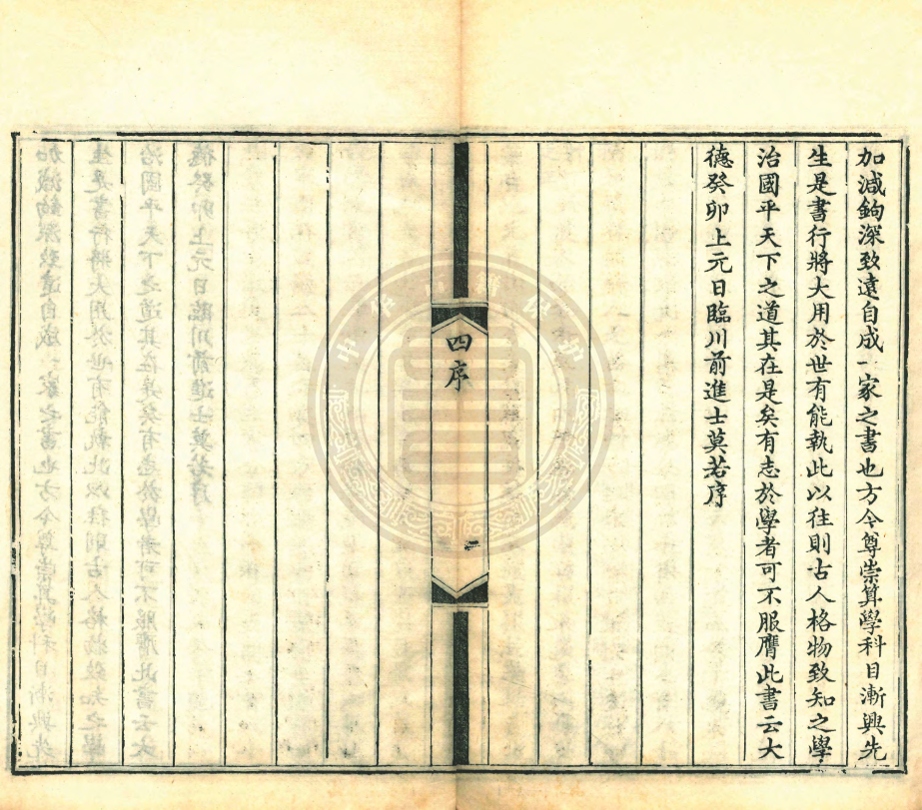 加減鉤深致遠自成一家之書也方今尊崇算學科目漸興先
生是書行將大用於世有能執此以往則古人格物致知之學
治國平天下之道其在是矣有志於學者可不服膺此書云大
德癸卯上元日臨川前進士莫若序
四序
二